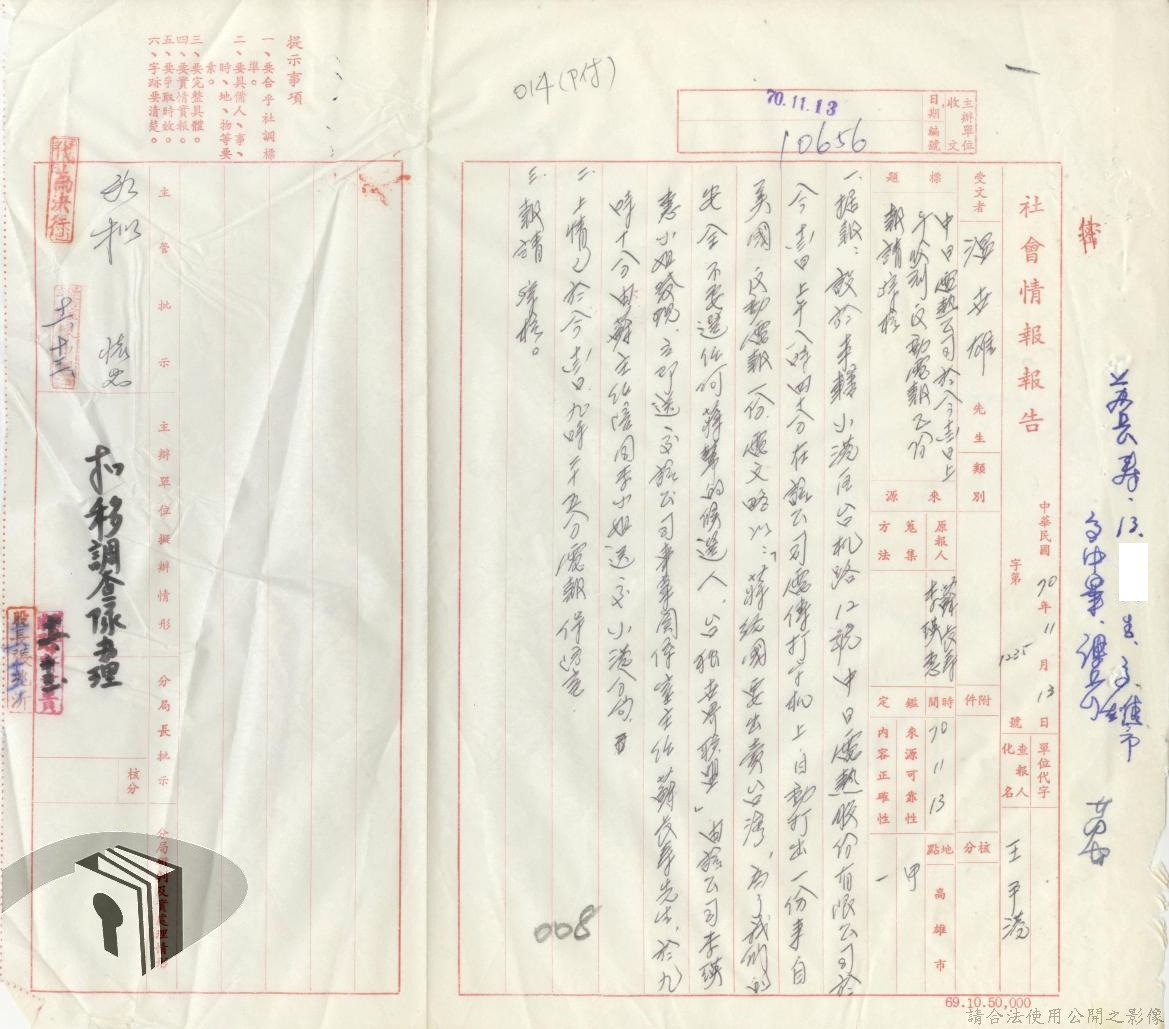 密
蘇長壽、13.
高雄市
014(P付)
主辦單位
收文
日期
編號
70.11.13
10656
社會情報報告
中華民國70年11月13日
字第1235號
單位代字
查報人化名
王平港
受文者
溫世雄 先生
類別
附件
核分
標題
中日電熱公司於今(13)日上
午收到反動電報乙份
報請鑒核
來源
原報人
蘇長壽
李瑛惠
蒐集方法
鑑定
時間
70 11 13
來源可靠性
甲
內容正確性
一
地點
高雄市
一、據報:設於本轄小港區台機路12號中日電熱股份有限公司於
今(13)日上午八時四十分在該公司電傳打字机上自動打出一份來自
美國反動電報一份,電文略以:「蔣経國要出賣台灣,為了我們的
安全不要選任何蔣幫的候選人,台獨世界聯盟」由該公司李瑛
惠小姐發現,立即送交該公司
主任蘇長壽先生,於九
時十分由蘇主任陪同李小姐送交小港分局。
二、上情已於今(13)日九時二十五分電報保防室。
三、報請 鑒核。
008
69.10.50,000
提示事項
一、要合乎社調標準。
二、要具備人、事、時、地、物等要素。
三、要完整具體。
四、要實情實報。
五、要爭取時效。
六、字跡要清楚。
主管批示
代為決行
如擬
十一、十三
主辦單位擬辦情形
扣移調查隊處理
分局長批示
核分
請合法使用公開之影像